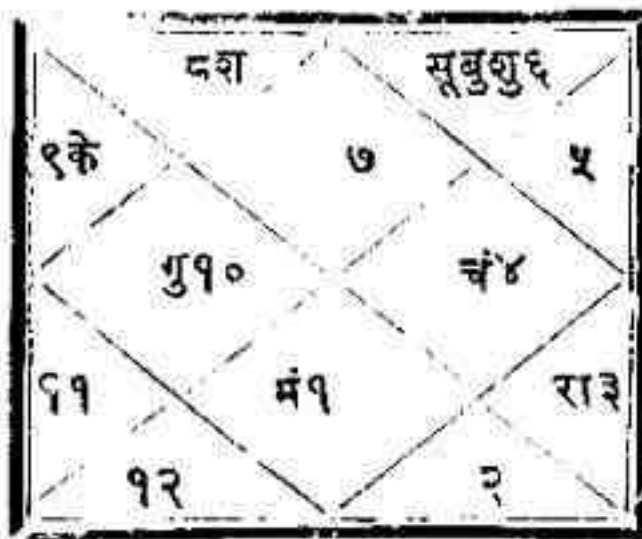 ८श सूबुशु६
९के ७ ५
गु१० चं४
११ मं१ रा३
१२ २